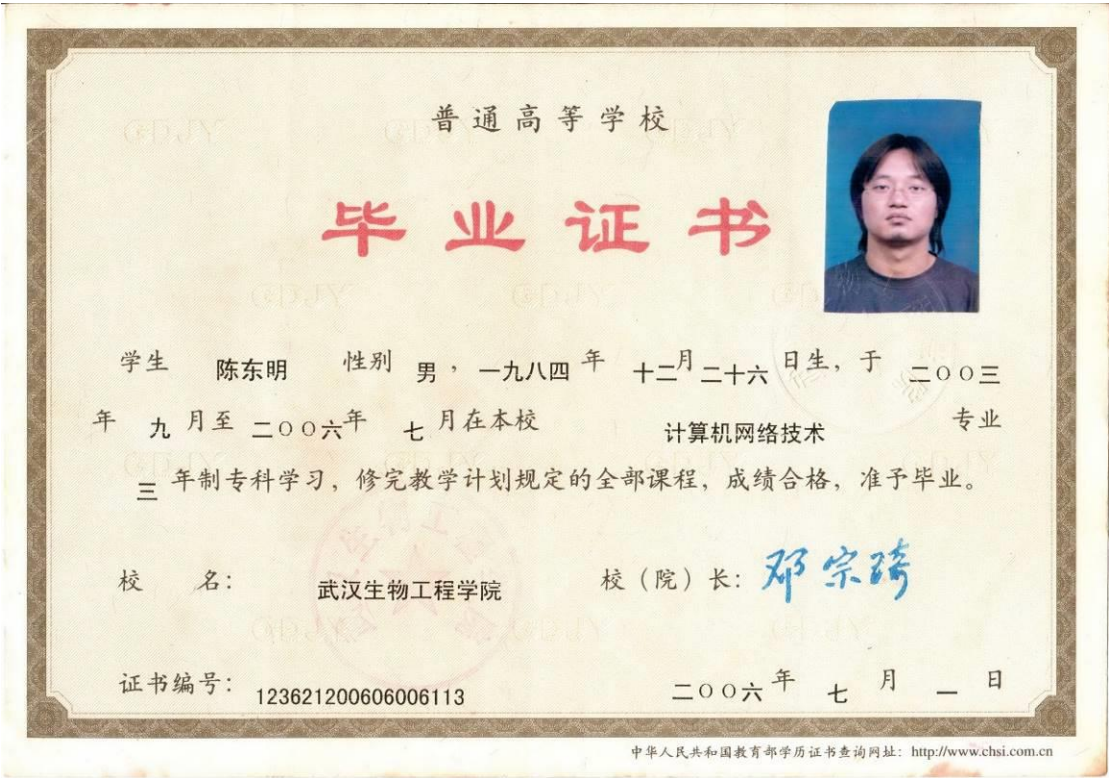 普通高等学校
毕业证书
学生 陈东明 性别 男，一九八四年 十二月二十六日生，于 二〇〇三
年 九 月至 二〇〇六年 七 月在本校 计算机网络技术 专业
三 年制专科学习，修完教学计划规定的全部课程，成绩合格，准予毕业。
校 名： 武汉生物工程学院 校（院）长：邓宗琦
证书编号： 123621200606006113 二〇〇六 年 七 月 一 日
中华人民共和国教育部学历证书查询网址：http://www.chsi.com.cn